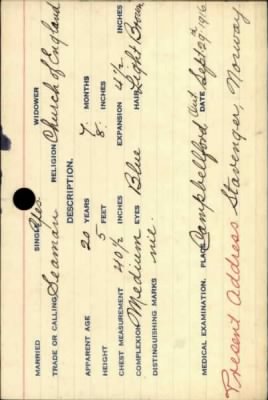 MARRIED SINGLE Yes WIDOWER
TRADE OR CALLING Seaman RELIGION Church of England
DESCRIPTION.
APPARENT AGE 20 YEARS 7 MONTHS
HEIGHT 5 FEET 8 INCHES
CHEST MEASUREMENT 40 1/2 INCHES EXPANSION 4 1/2 INCHES
COMPLEXION Medium EYES Blue HAIR Light Brown
DISTINGUISHING MARKS nil.
MEDICAL EXAMINATION. PLACE Campbellford Ont DATE Sept 29th 1916
Present Address Stavenger, Norway